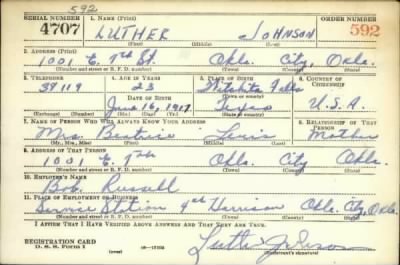 592
SERIAL NUMBER 1. NAME (Print) ORDER NUMBER
4707 LUTHER JOHNSON 592
(First) (Middle) (Last)
2. ADDRESS (Print)
1001 E. 7th St. Okla. City, Okla.
(Number and street or R. F. D. number) (Town) (County) (State)
3. TELEPHONE 4. AGE IN YEARS 5. PLACE OF BIRTH 6. COUNTRY OF CITIZENSHIP
23 Wichita Falls
DATE OF BIRTH (Town or county)
June 16, 1917 Texas U.S.A.
(Exchange) (Number) (Mo.) (Day) (Yr.) (State or country)
7. NAME OF PERSON WHO WILL ALWAYS KNOW YOUR ADDRESS 8. RELATIONSHIP OF THAT PERSON
Mrs. Beatrice Lewis Mother
(Mr., Mrs., Miss) (First) (Middle) (Last)
9. ADDRESS OF THAT PERSON
1001 E. 7th Okla. City Okla.
(Number and street or R. F. D. number) (Town) (County) (State)
10. EMPLOYER'S NAME
Bob Russell
11. PLACE OF EMPLOYMENT OR BUSINESS
Service Station 9th Harrison Okla. City, Okla.
(Number and street or R. F. D. number) (Town) (County) (State)
I AFFIRM THAT I HAVE VERIFIED ABOVE ANSWERS AND THAT THEY ARE TRUE.
REGISTRATION CARD
D. S. S. Form 1 (over)
Luther Johnson
(Registrant's signature)